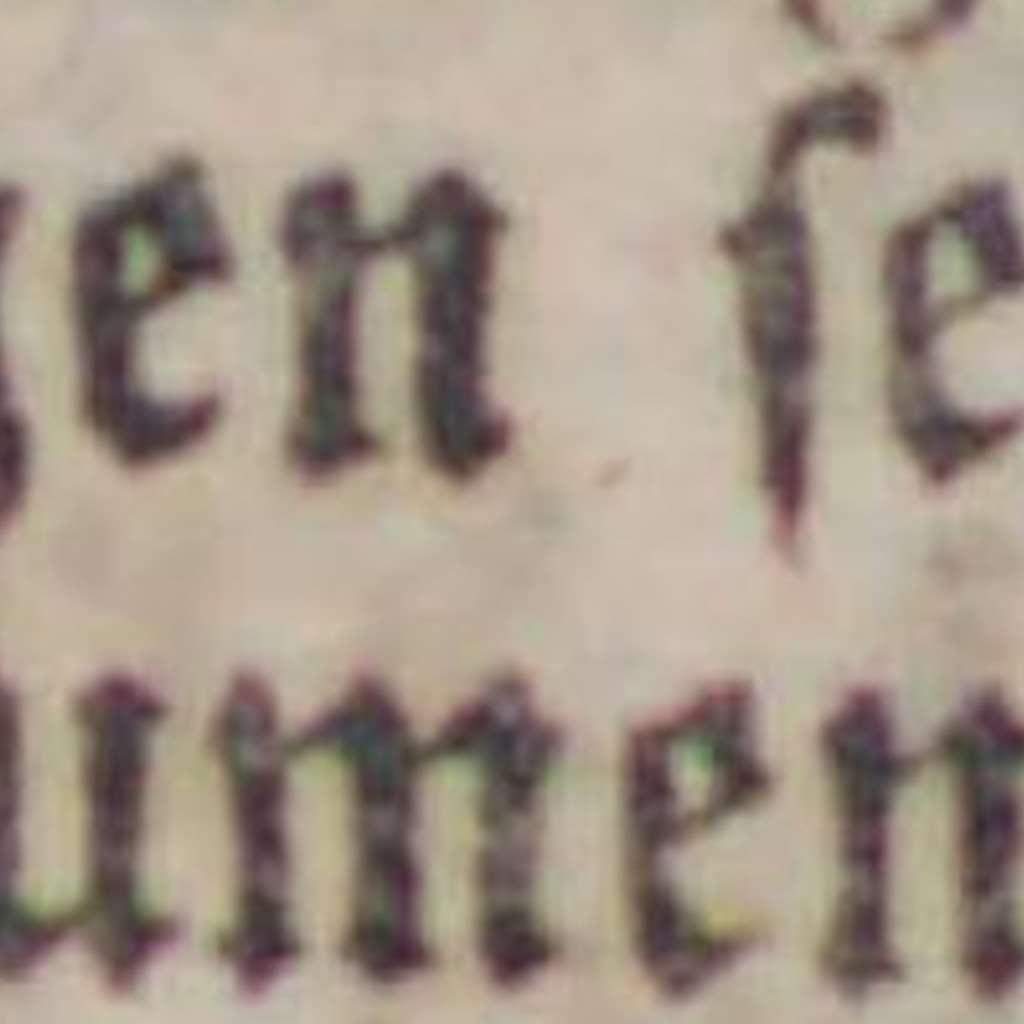 en ſe
umen